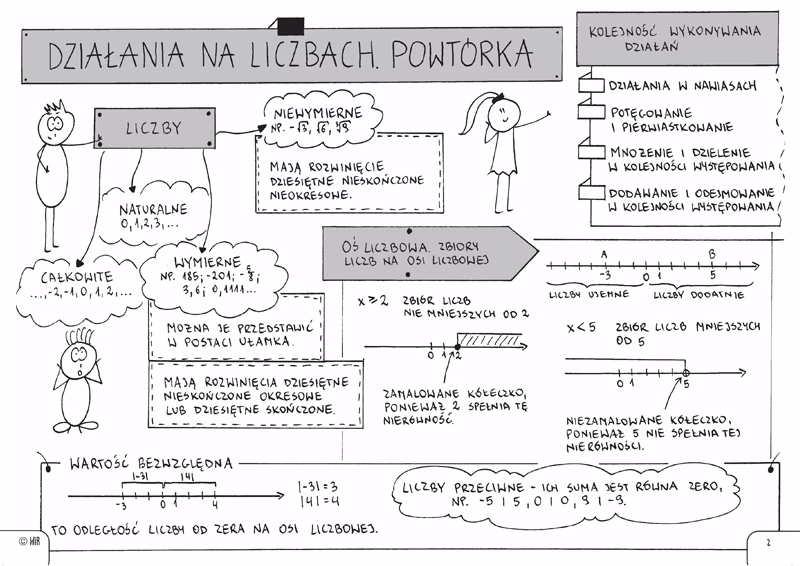 DZIAŁANIA NA LICZBACH. POWTÓRKA
KOLEJNOŚĆ WYKONYWANIA
DZIAŁAŃ
DZIAŁANIA W NAWIASACH
POTĘGOWANIE
I PIERWIASTKOWANIE
MNOŻENIE I DZIELENIE
W KOLEJNOŚCI WYSTĘPOWANIA
DODAWANIE I ODEJMOWANIE
W KOLEJNOŚCI WYSTĘPOWANIA
LICZBY
NIEWYMIERNE
NP. -√3, √6,
MAJĄ ROZWINIĘCIE
DZIESIĘTNE NIESKOŃCZONE
NIEOKRESOWE.
NATURALNE
0, 1, 2, 3, ...
CAŁKOWITE
..., -2, -1, 0, 1, 2, ...
WYMIERNE
NP. 185; -201; -5/8;
3,6; 0,1111...
MOŻNA JE PRZEDSTAWIĆ
W POSTACI UŁAMKA.
MAJĄ ROZWINIĘCIA DZIESIĘTNE
NIESKOŃCZONE OKRESOWE
LUB DZIESIĘTNE SKOŃCZONE.
OŚ LICZBOWA. ZBIORY
LICZB NA OSI LICZBOWEJ
A B
-3 0 1 5
LICZBY UJEMNE LICZBY DODATNIE
x ≥ 2 ZBIÓR LICZB
NIE MNIEJSZYCH OD 2
0 1 2
ZAMALOWANE KÓŁECZKO,
PONIEWAŻ 2 SPEŁNIA TĘ
NIERÓWNOŚĆ.
x < 5 ZBIÓR LICZB MNIEJSZYCH
OD 5
0 1 5
NIEZAMALOWANE KÓŁECZKO,
PONIEWAŻ 5 NIE SPEŁNIA TEJ
NIERÓWNOŚCI.
WARTOŚĆ BEZWZGLĘDNA
|-3| |4|
-3 0 1 4
|-3| = 3
|4| = 4
TO ODLEGŁOŚĆ LICZBY OD ZERA NA OSI LICZBOWEJ.
LICZBY PRZECIWNE - ICH SUMA JEST RÓWNA ZERO,
NP. -5 I 5, 0 I 0, 9 I -9.
© WiR
2